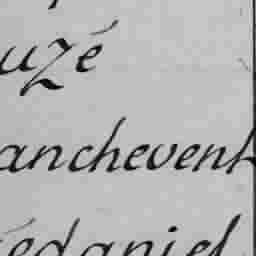 uzé
anchevent
édaniel